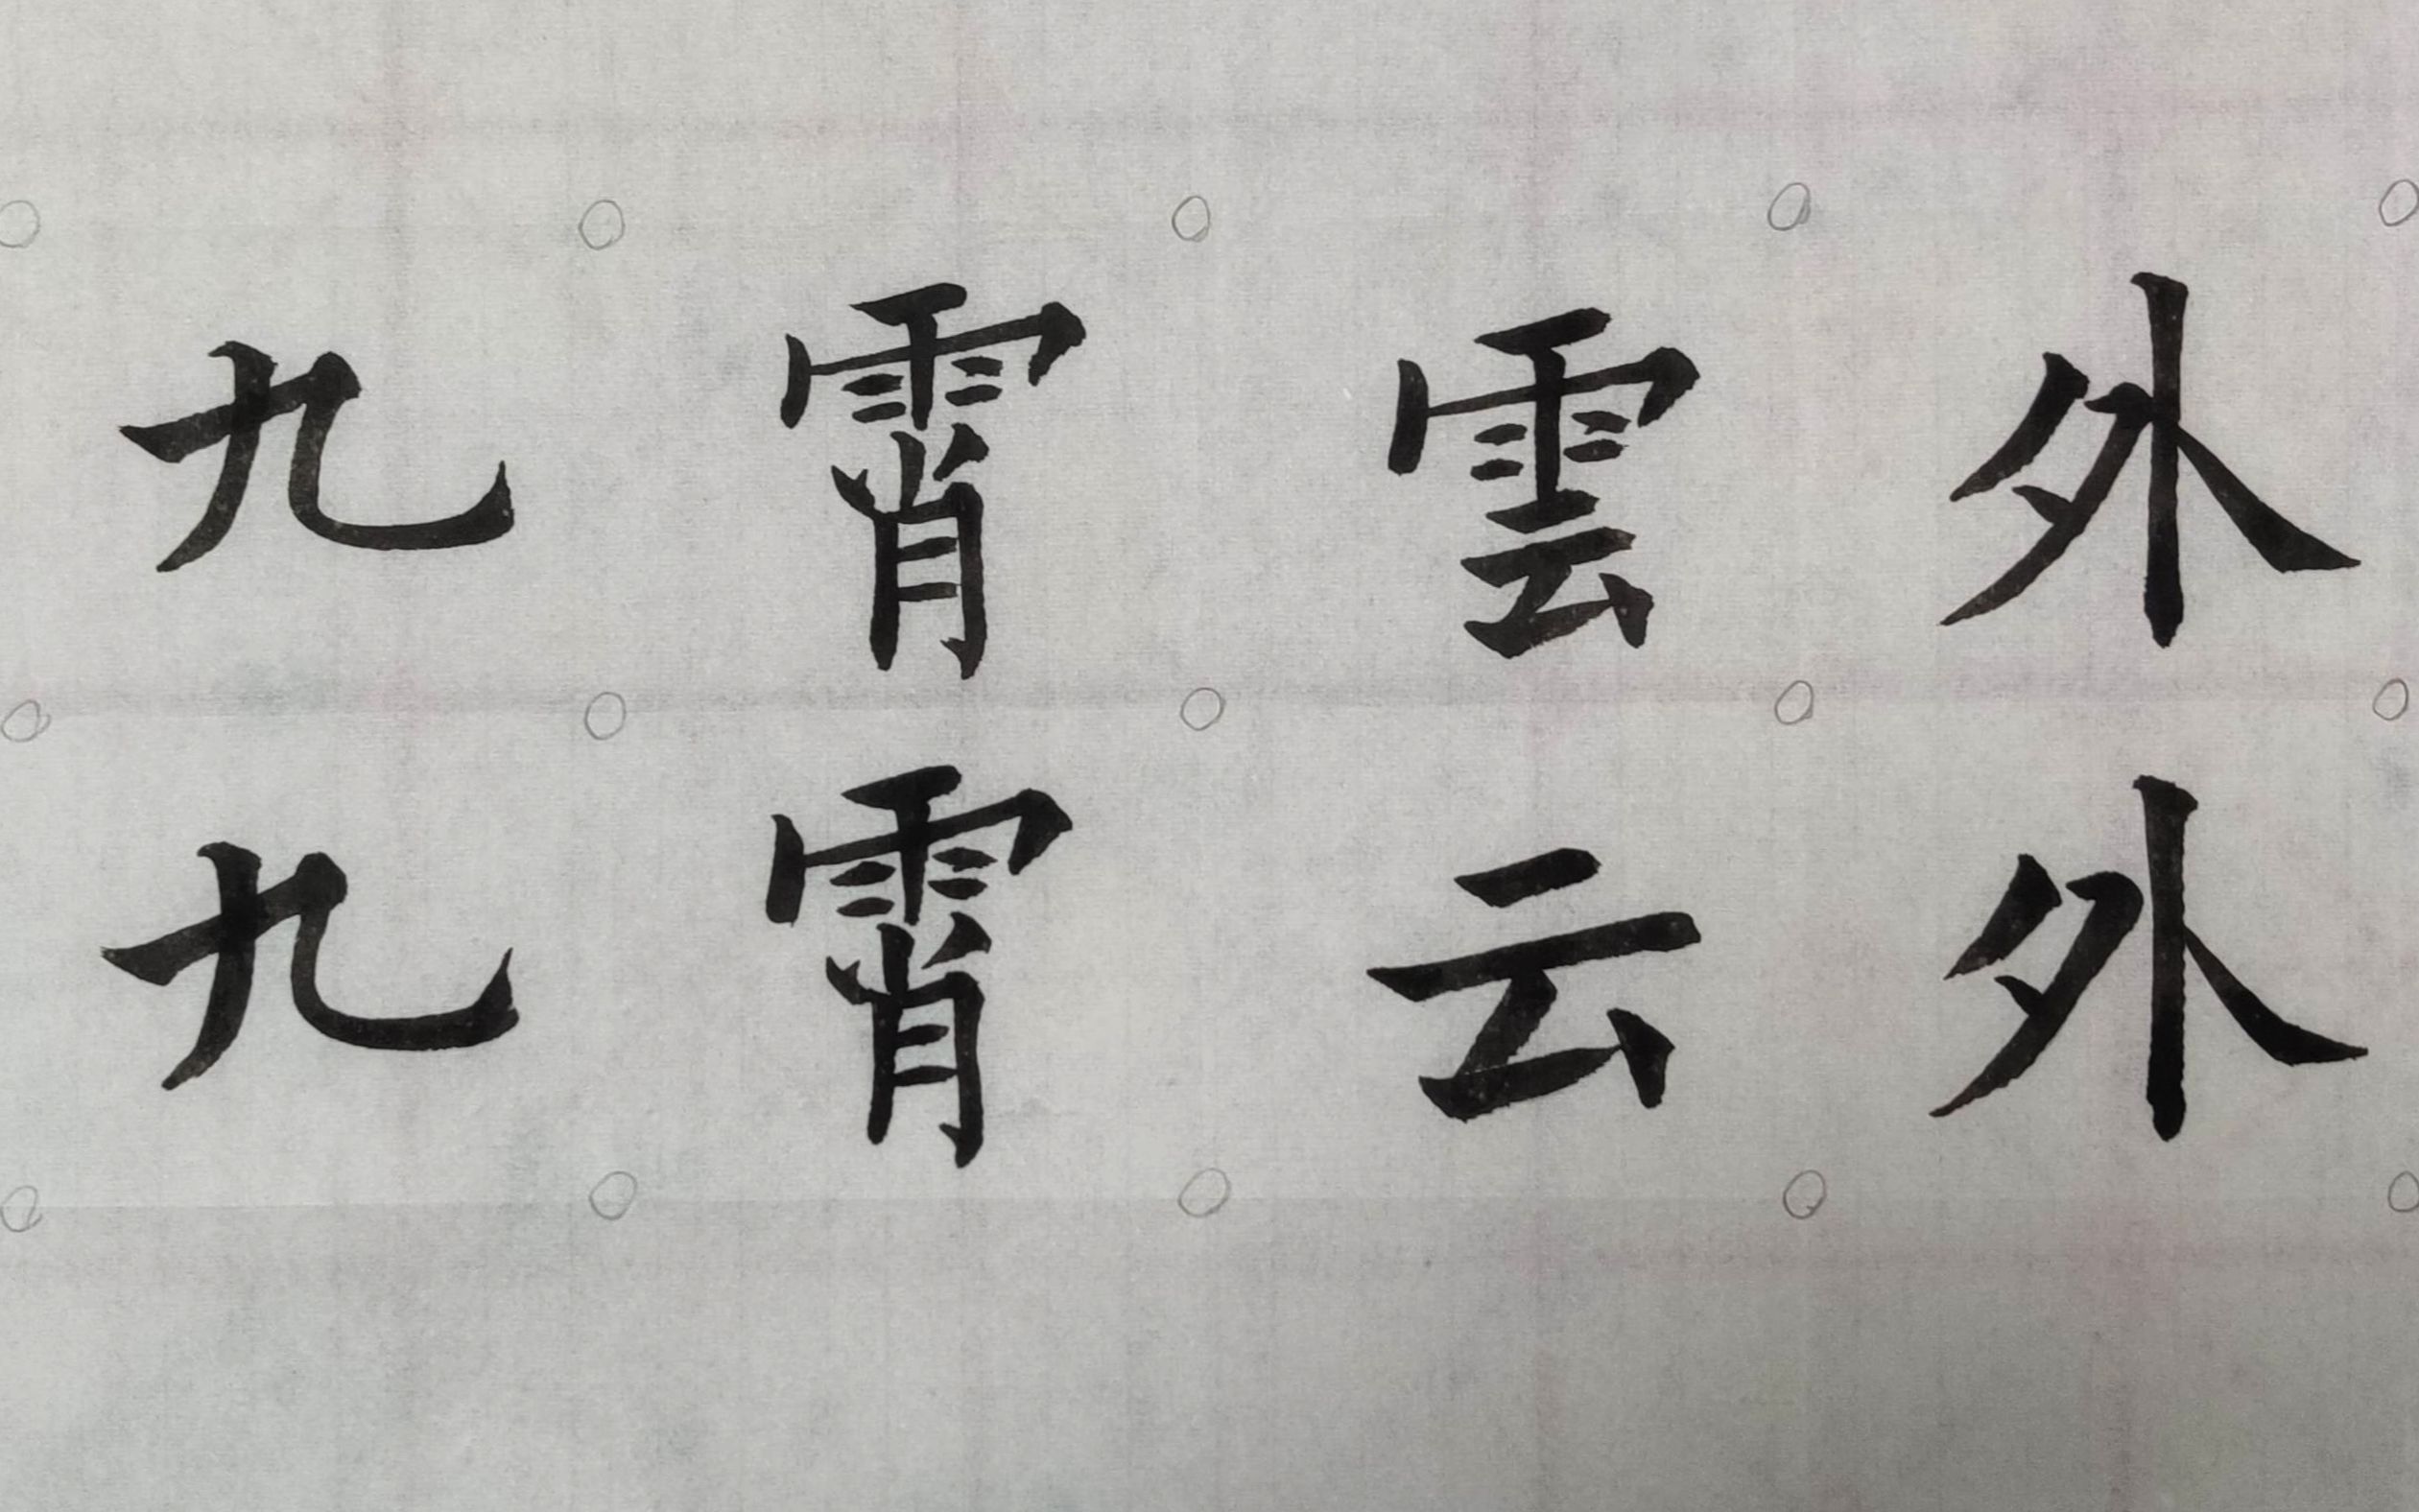 九霄雲外
九霄云外